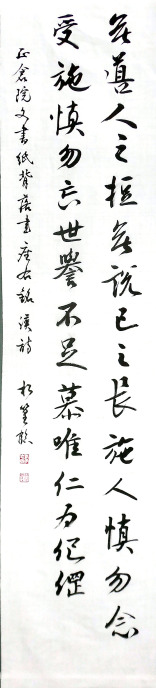 無道人之短無說己之長施人慎勿念
受施慎勿忘世譽不足慕唯仁為紀綱
正倉院文書紙背落書座右銘漢詩